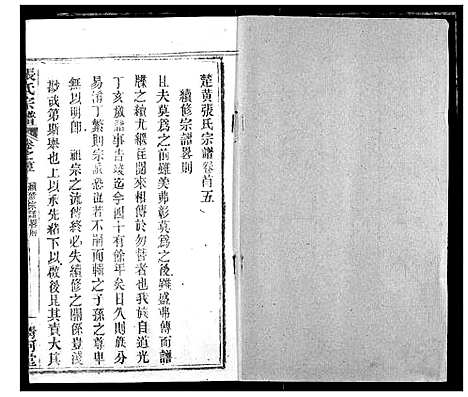 楚黄張氏宗譜卷首五
續修宗譜畧則
且夫莫為之前雖美弗彰莫為之後雖盛弗傳而譜
牒之續尤繼往開來相傳於勿替者也我族自道光
丁亥放譜事告竣迄今四十有餘年矣日久則族分
易淆丁繁則宗派愈也若不嗣而輯之子孫之尊卑
無以明即 祖宗之流傳終必失續修之關係豈淺
尠哉第斯舉也上以承先緒下以啟後昆其責大其
張氏宗譜
卷之首
續修宗譜畧則